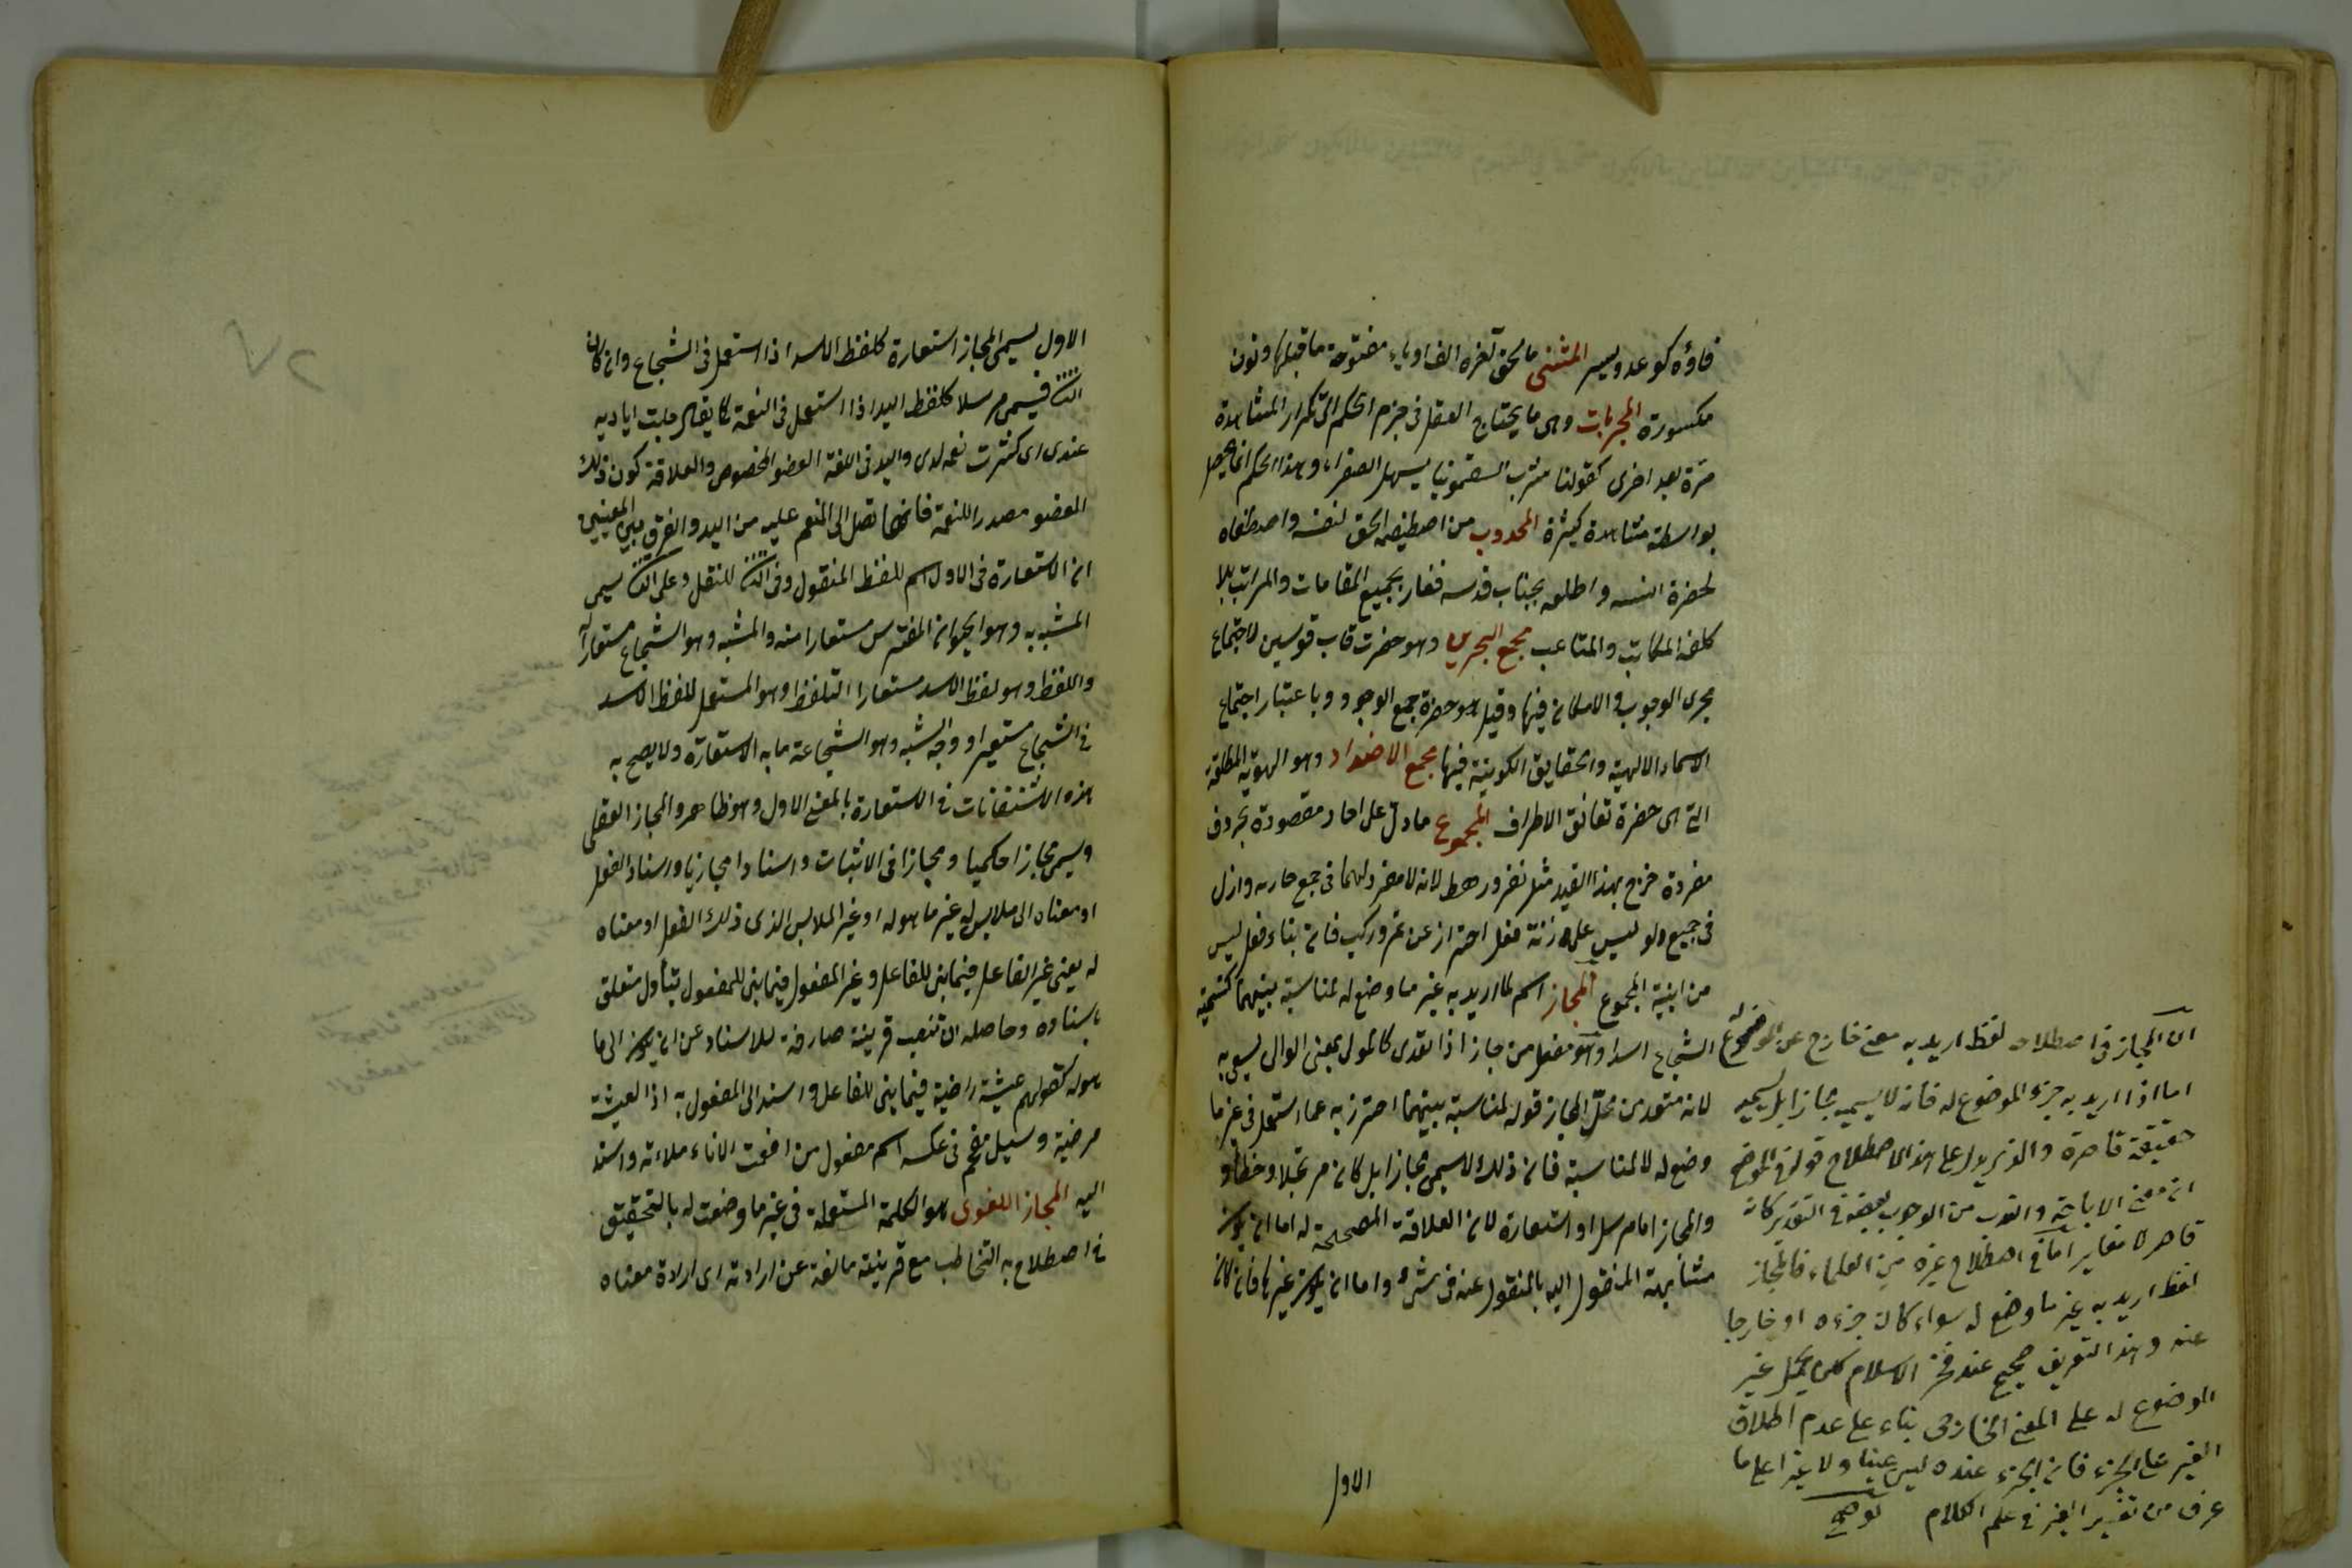 فاؤه كوعد ويسر المثنى ما لحق آخره الف او ياء مفتوحة ما قبلها ونون
مكسورة المجربات وهى ما يحتاج العقل فى جزم الحكم الى تكرار المشاهدة
مرة بعد اخرى كقولنا شرب السقمونيا يسهل الصفراء وهذا الحكم انما يحصل
بواسطة مشاهدة كثيرة المجذوب من اصطفيه الحق لنفسه واصطفاه
لحضرة انسه واطلعه بجناب قدسه ففاز بجميع المقامات والمراتب بلا
كلفة المكاسب والمتاعب مجمع البحرين وهو حضرت قاب قوسين لاجتماع
بحرى الوجوب والامكان فيها وقيل هو حضرة جمع الوجود وباعتبار اجتماع
الاسماء الالهية والحقايق الكونية فيها مجمع الاضداد وهو الهوية المطلقة
التى هى حضرة تعانق الاطراف المجموع ما دل على احاد مقصودة بحروف
مفردة خرج بهذا القيد مثل نفر ورهط لانه لا مفرد لهما فى جمع
فى جميع ولو ليس على زنة فعل احتراز عن تمر وركب فان بناء فعل ليس
من ابنية المجموع المجاز اسم لما اريد به غير ما وضع له لمناسبة بينهما كتسمية
الشجاع اسدا وهو مفعل من جاز اذا تعدى كالمولى بمعنى الوالى يسمى به
لانه متعد من محل المجاز قوله لمناسبة بينهما احترز به عما استعمل فى غير ما
وضع له لا لمناسبة فان ذلك لا يسمى مجازا بل كان مرتجلا او خطأ و
والمجاز اما مرسل او استعارة لان العلاقة المصححة له اما ان يكون
مشابهة المنقول اليه بالمنقول عنه فى شئ واما ان يكون غيرها فان كان
الاول
ان المجاز فى اصطلاحه لفظ اريد به معنى خارج عن الموضوع له
اما اذا اريد به جزء الموضوع له فانه لا يسميه مجازا بل يسميه
حقيقة قاصرة والذى يدل على هذا الاصطلاح قوله فى الموضح
ان معنى الاباحة والندب من الوجوب بعضه فى التقدير كانه
قاصر لا مغاير اما فى اصطلاح غيره من العلماء فالمجاز
لفظ اريد به غير ما وضع له سواء كان جزءه او خارجا
عنه وهذا التعريف صحيح عند فخر الاسلام لكن يحمل غير
الموضوع له على المعنى الخارجى بناء على عدم اطلاق
الغير على الجزء فان الجزء عنده ليس عينا ولا غيرا على ما
عرف من تفسير الغير فى علم الكلام توضيح
الاول يسمى المجاز استعارة كلفظ الاسد اذا استعمل فى الشجاع وان كان
الثانى فيسمى مرسلا كلفظ اليد اذا استعمل فى النعمة كما يقال جلت اياديه
عندى اى كثرت نعمه لدى واليد فى اللغة العضو المخصوص والعلاقة كون ذلك
العضو مصدرا للنعمة فانها تصل الى المنعم عليه من اليد والفرق بين المعنيين
ان الاستعارة فى الاول اسم للفظ المنقول وفى الثانى للنقل وعلى الثانى يسمى
المشبه به وهو الحيوان المفترس مستعارا منه والمشبه وهو الشجاع مستعارا له
واللفظ وهو لفظ الاسد مستعارا التلفظ وهو المستعمل للفظ الاسد
فى الشجاع مستعيرا ووجه الشبه وهو الشجاعة ما به الاستعارة ولا يصح به
هذه الاشتقاقات فى الاستعارة بالمعنى الاول وهو ظاهر والمجاز العقلى
ويسمى مجازا حكميا ومجازا فى الاثبات واسنادا مجازيا واسناد الفعل
او معناه الى ملابس له غير ما هو له او غير الملابس الذى ذلك الفعل او معناه
له يعنى غير الفاعل فيما بنى للفاعل وغير المفعول فيما بنى للمفعول بتأول متعلق
باسناده وحاصله ان تنصب قرينة صارفة للاسناد عن ان يكون الى ما
هو له كقولهم عيشة راضية فيما بنى للفاعل واسند الى المفعول به اذ العيشة
مرضية وسيل مفعم فى عكسه اسم مفعول من افعمت الاناء ملاءته واسند
اليه المجاز اللغوى هو الكلمة المستعملة فى غير ما وضعت له بالتحقيق
فى اصطلاح به التخاطب مع قرينة مانعة عن ارادته اى ارادة معناه